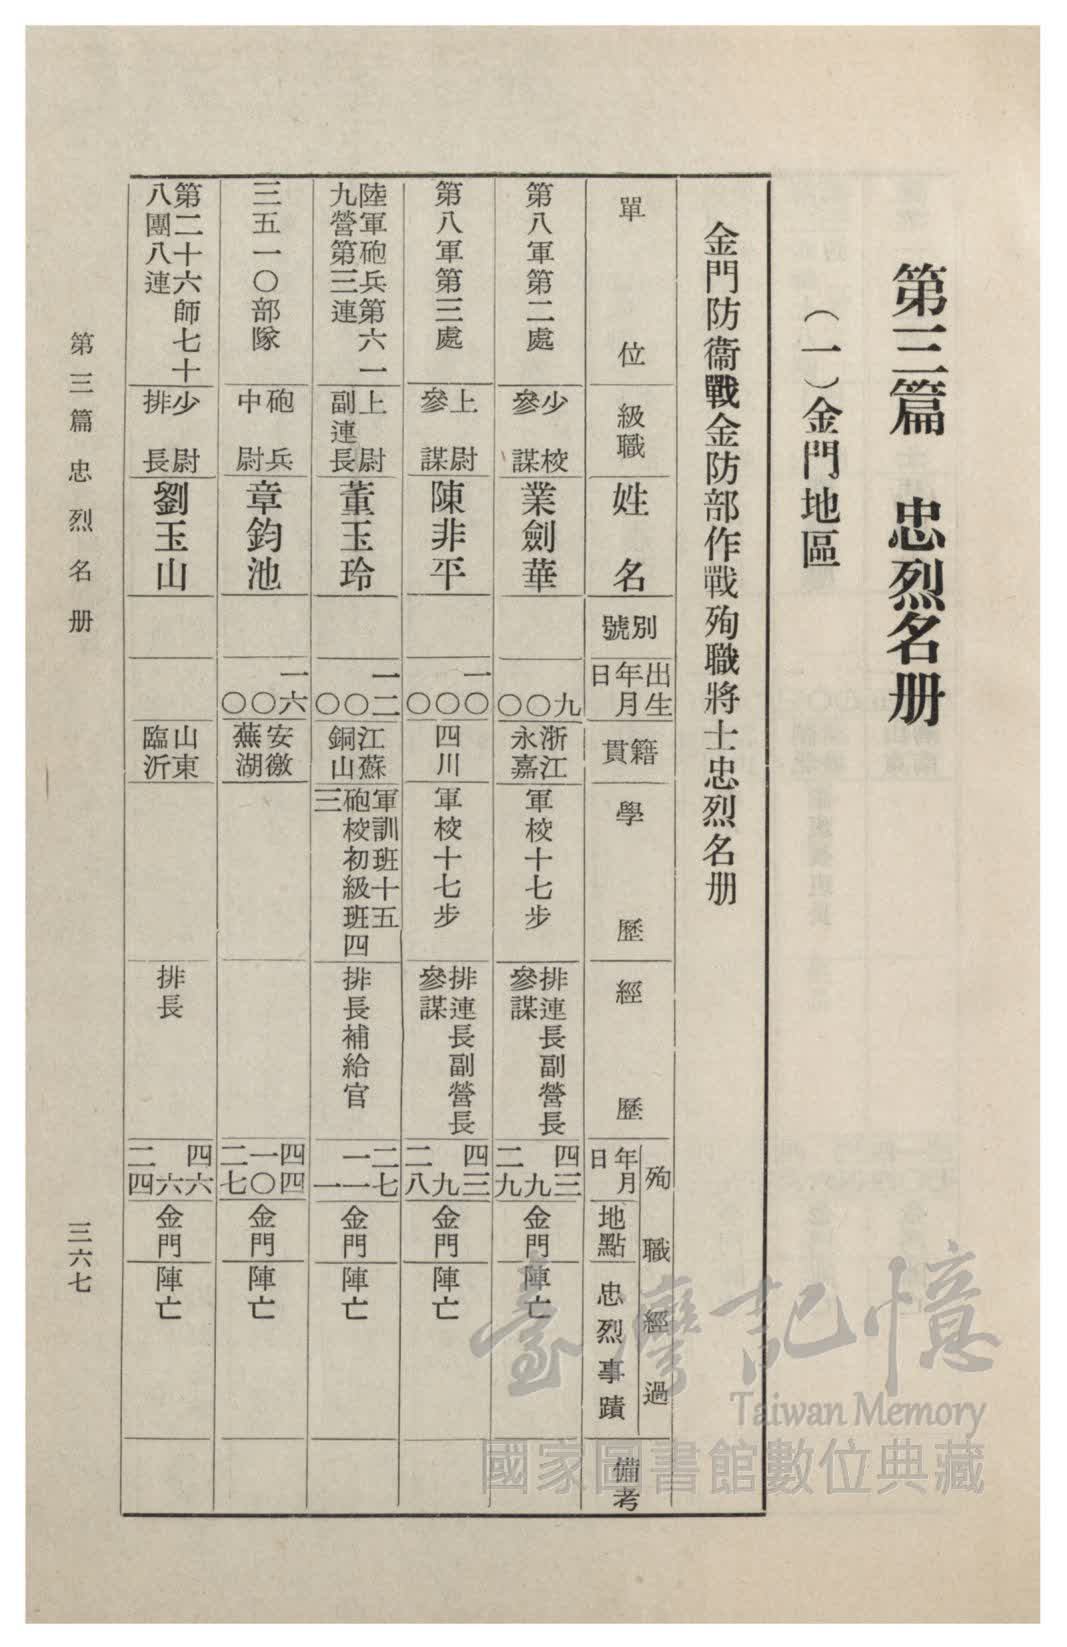 第三篇　忠烈名册
（一）金門地區
金門防衞戰金防部作戰殉職將士忠烈名册
單位
級職
姓名
別號
出生
年月
日
籍貫
學歷
經歷
殉職經過
年月
日
地點
忠烈事蹟
備考
第八軍第二處
少校
參謀
業劍華
九〇〇
浙江
永嘉
軍校十七步
排連長副營長
參謀
四三 九 二九
金門
陣亡
第八軍第三處
上尉
參謀
陳非平
一〇〇〇
四川
軍校十七步
排連長副營長
參謀
四三 九 二八
金門
陣亡
陸軍砲兵第六一
九營第三連
上尉
副連長
董玉玲
一二〇〇
江蘇
銅山
軍訓班十五
砲校初級班四
三
排長補給官
二七 一 一一
金門
陣亡
三五一〇部隊
砲兵
中尉
章鈞池
一六〇〇
安徽
蕪湖
四四 一〇 二七
金門
陣亡
第二十六師七十
八團八連
少尉
排長
劉玉山
山東
臨沂
排長
四六 六 二四
金門
陣亡
第三篇　忠烈名册
三六七
臺灣記憶
Taiwan Memory
國家圖書館數位典藏